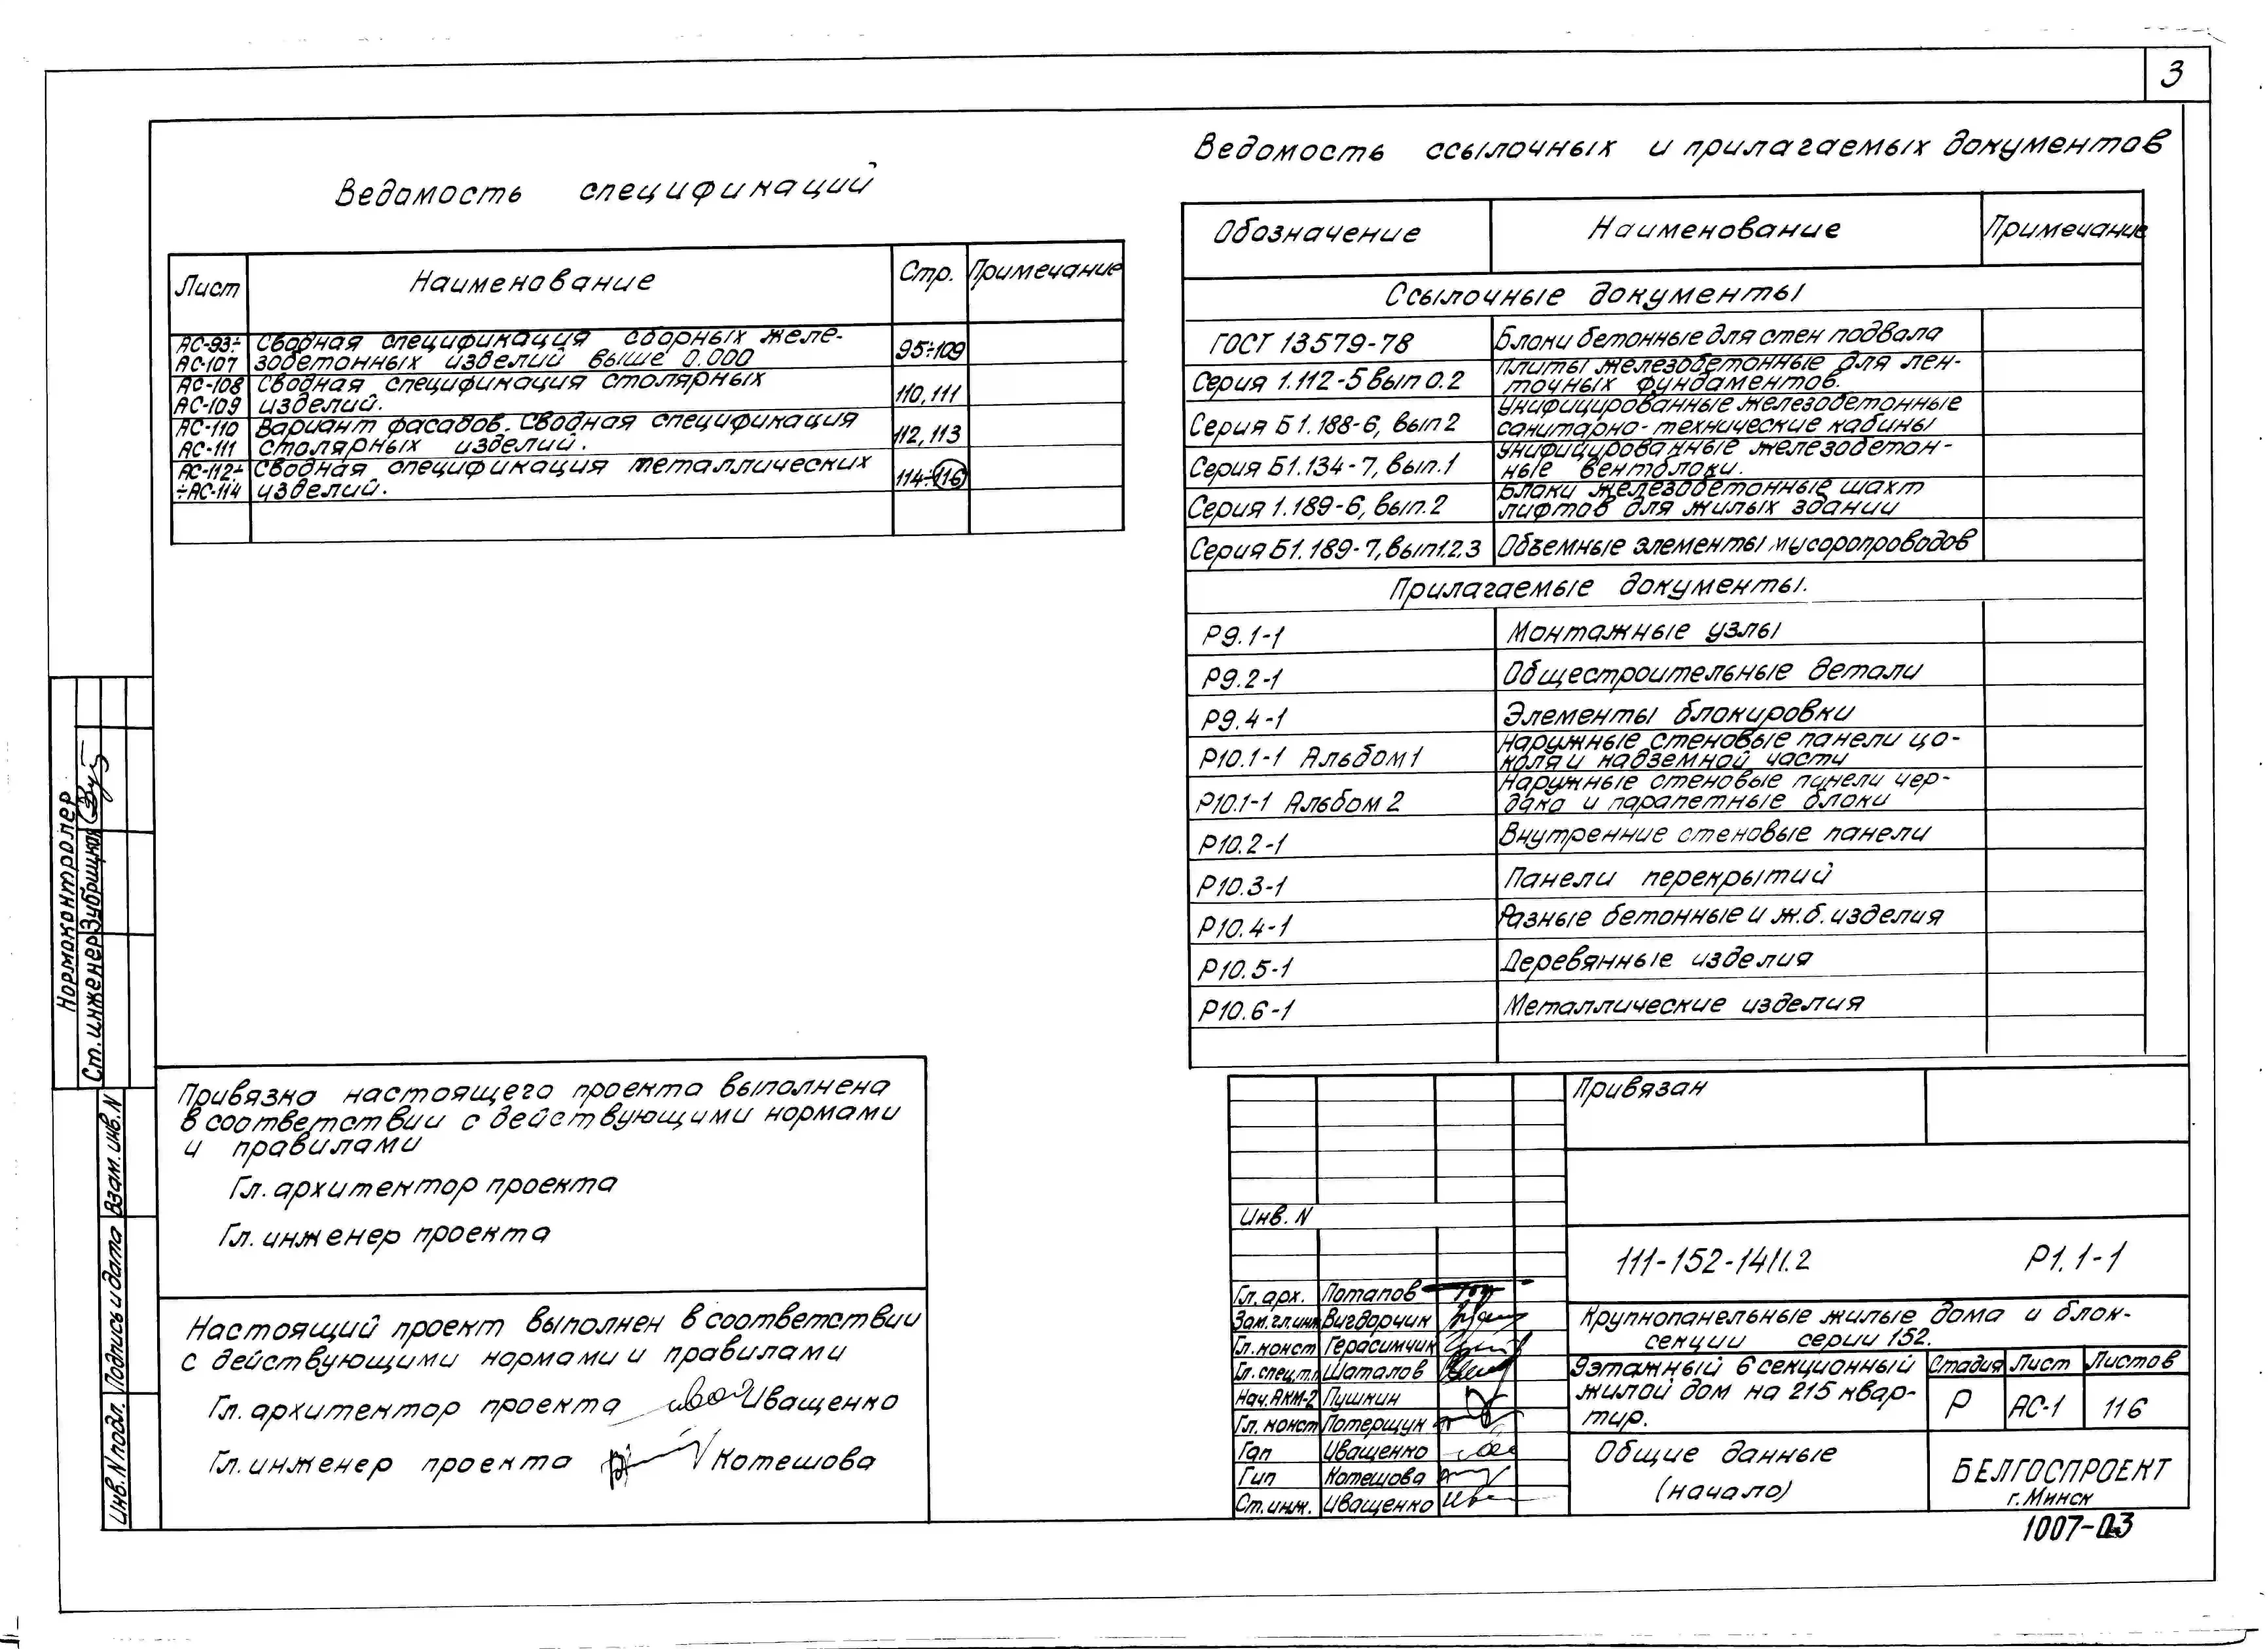 3
Ведомость спецификаций
Лист Наименование Стр. Примечание
АС-93÷ Сводная спецификация сборных желе-
АС-107 зобетонных изделий выше 0.000 95÷109
АС-108 Сводная спецификация столярных
АС-109 изделий. 110,111
АС-110 Вариант фасадов. Сводная спецификация
АС-111 столярных изделий. 112,113
АС-112÷ Сводная спецификация металлических
÷АС-114 изделий. 114÷116
Ведомость ссылочных и прилагаемых документов
Обозначение Наименование Примечание
Ссылочные документы
ГОСТ 13579-78 Блоки бетонные для стен подвала
Серия 1.112-5 вып 0.2 Плиты железобетонные для лен-
точных фундаментов.
Серия Б1.188-6, вып2 Унифицированные железобетонные
санитарно-технические кабины
Серия Б1.134-7, вып.1 Унифицированные железобетон-
ные вентблоки.
Серия 1.189-6, вып.2 Блоки железобетонные шахт
лифтов для жилых зданий
Серия Б1.189-7, вып1.2,3 Объемные элементы мусоропроводов
Прилагаемые документы.
Р9.1-1 Монтажные узлы
Р9.2-1 Общестроительные детали
Р9.4-1 Элементы блокировки
Р10.1-1 Альбом 1 Наружные стеновые панели цо-
коля и надземной части
Р10.1-1 Альбом 2 Наружные стеновые панели чер-
дака и парапетные блоки
Р10.2-1 Внутренние стеновые панели
Р10.3-1 Панели перекрытий
Р10.4-1 Разные бетонные и ж.б. изделия
Р10.5-1 Деревянные изделия
Р10.6-1 Металлические изделия
Нормоконтролер
Ст. инженер Зубрицкая
Взам. инв. N
Подпись и дата
Инв. N подл.
Привязка настоящего проекта выполнена
в соответствии с действующими нормами
и правилами
Гл. архитектор проекта
Гл. инженер проекта
Настоящий проект выполнен в соответствии
с действующими нормами и правилами
Гл. архитектор проекта Иващенко
Гл. инженер проекта Котешова
Привязан
Инв. N
111-152-141/1.2 Р1.1-1
Гл. арх. Потапов
Зам. гл. инж Вигдорчик
Гл. конст Герасимчик
Гл. спец.т.п Шаталов
Нач. АКМ-2 Пушкин
Гл. конст Потерщук
Гап Иващенко
Гип Котешова
Ст. инж. Иващенко
Крупнопанельные жилые дома и блок-
секции серии 152.
9этажный 6 секционный
жилой дом на 215 квар-
тир.
Стадия Лист Листов
Р АС-1 116
Общие данные
(начало)
БЕЛГОСПРОЕКТ
г. Минск
1007-03